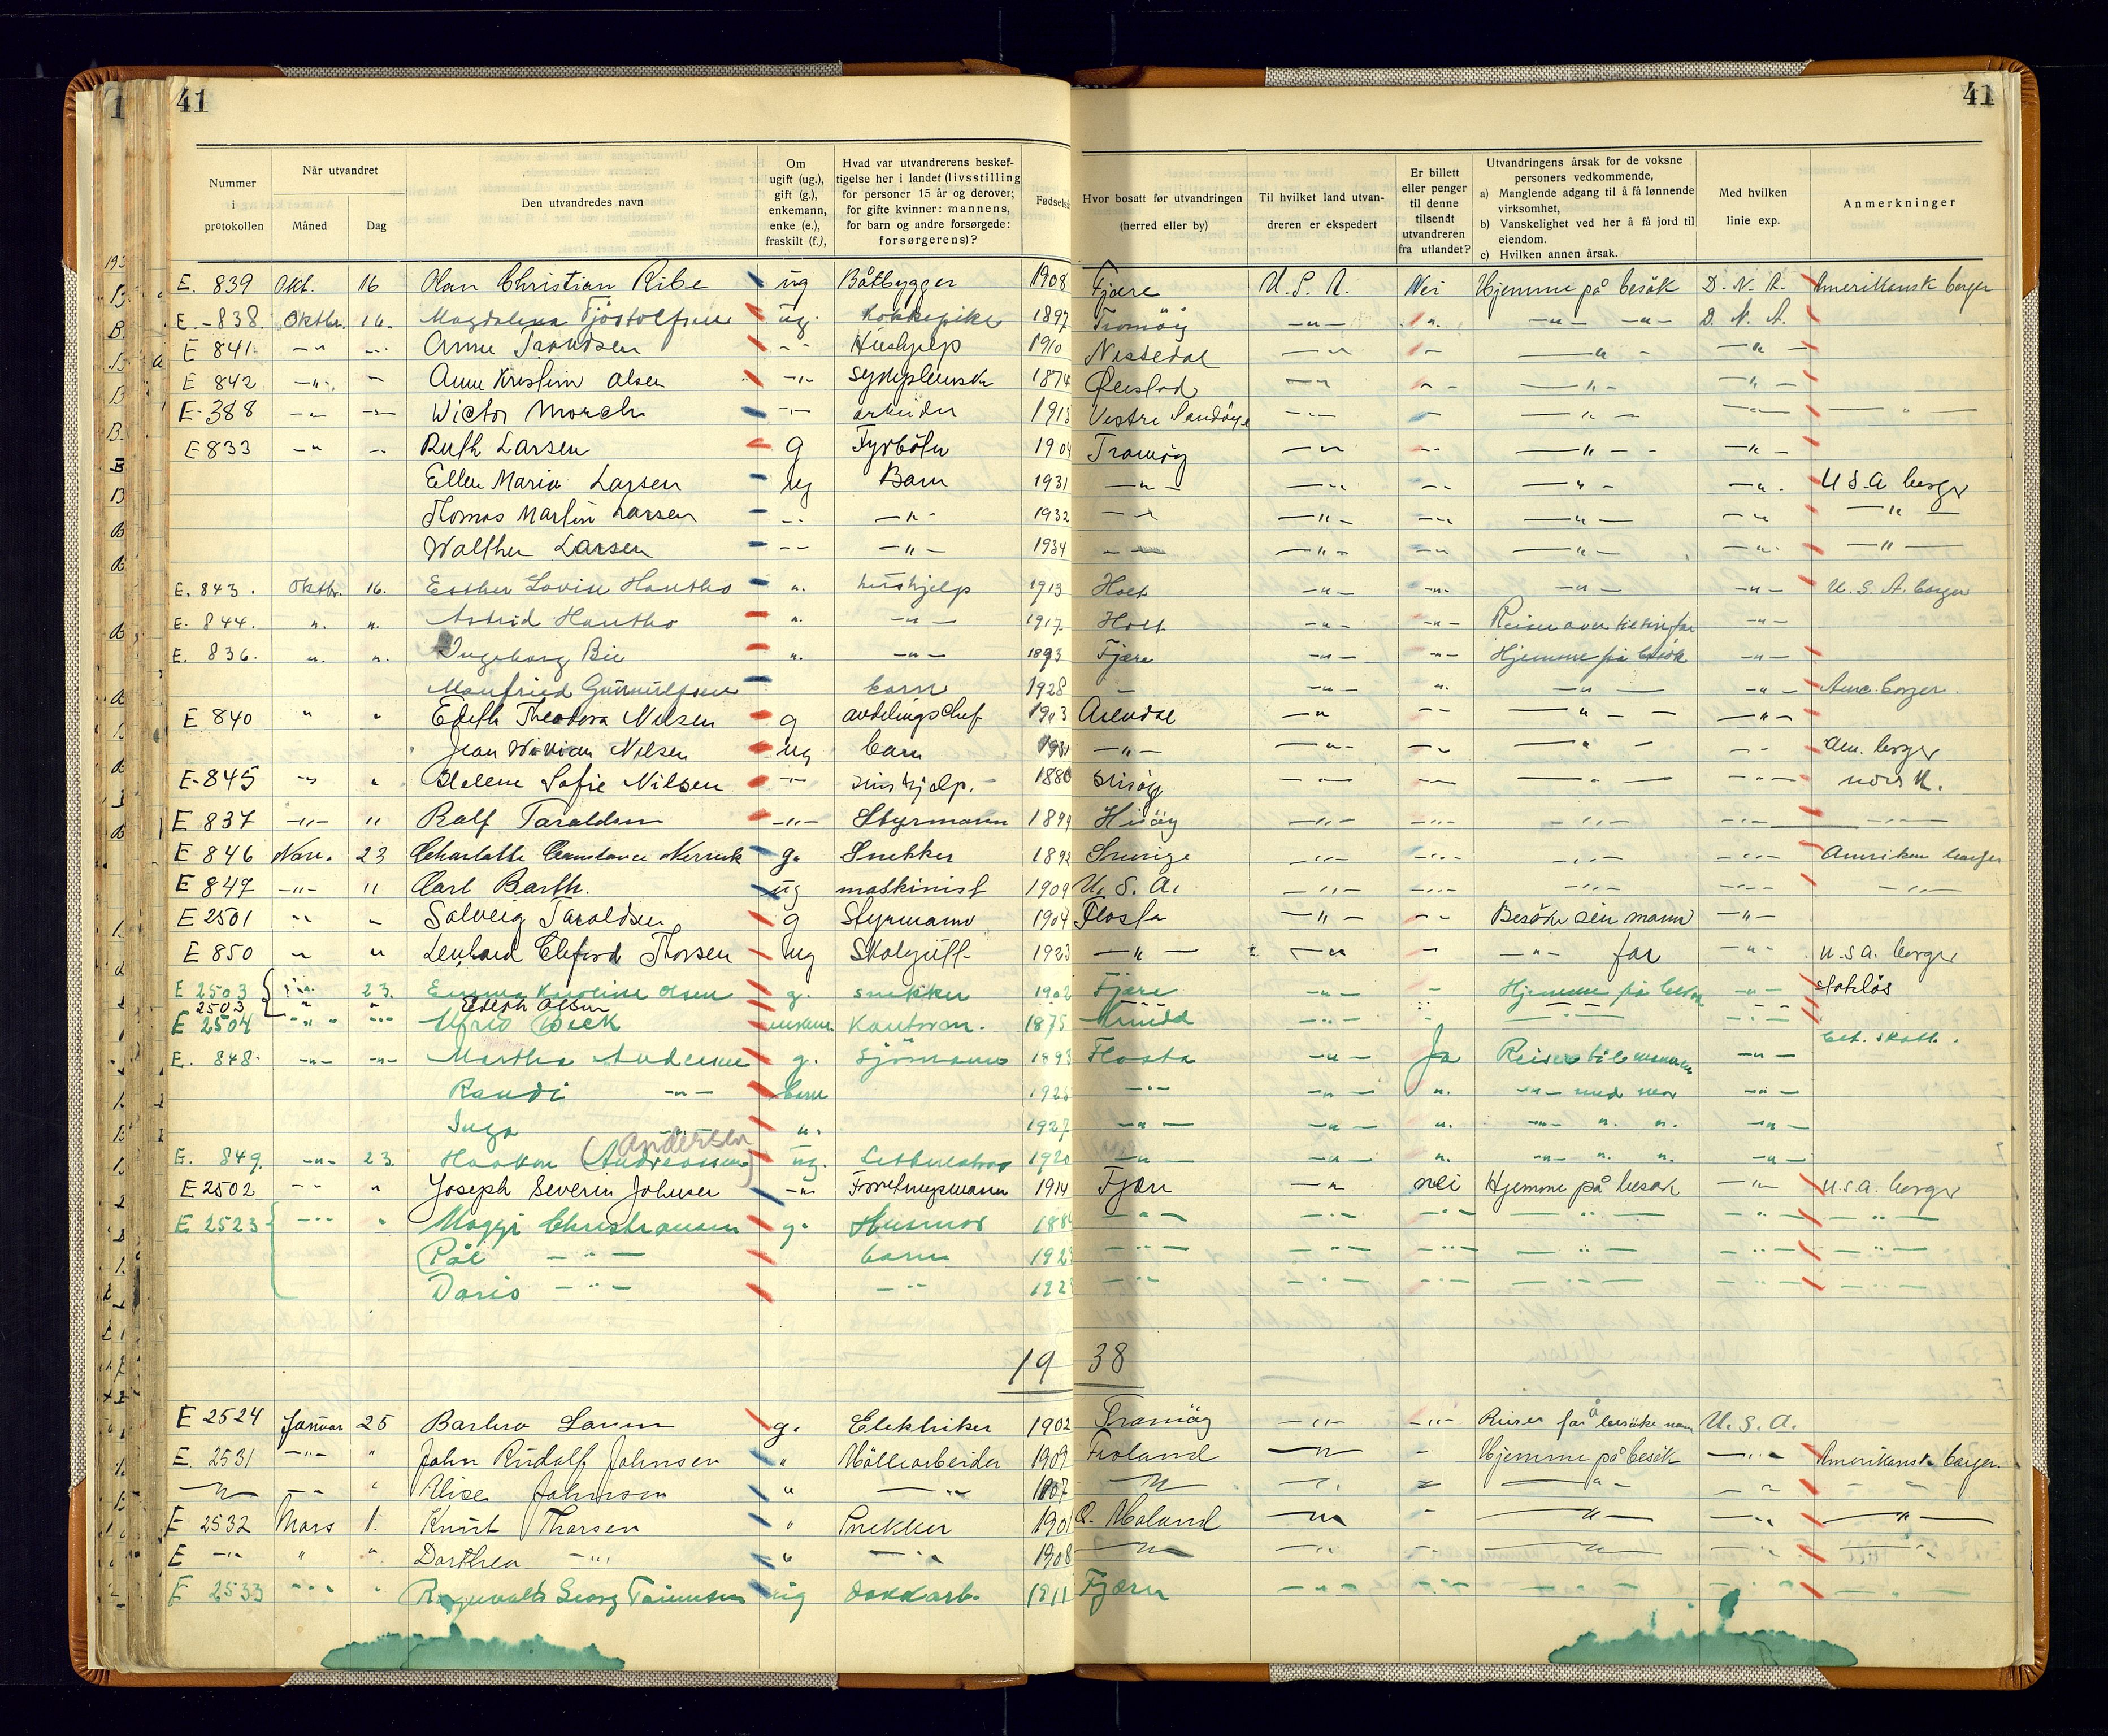 41
41
Nummer i protokollen | Når utvandret Måned | Dag | Den utvandredes navn | Om ugift (ug.), gift (g.), enkemann, enke (e.), fraskilt (f.), | Hvad var utvandrerens beskeftigelse her i landet (livsstilling for personer 15 år og derover; for gifte kvinner: mannens, for barn og andre forsørgede: forsørgerens)? | Fødsels | Hvor bosatt før utvandringen (herred eller by) | Til hvilket land utvandreren er ekspedert | Er billett eller penger til denne tilsendt utvandreren fra utlandet? | Utvandringens årsak for de voksne personers vedkommende, a) Manglende adgang til å få lønnende virksomhet, b) Vanskelighet ved her å få jord til eiendom. c) Hvilken annen årsak. | Med hvilken linie exp. | Anmerkninger
E. 839 Okt. 16 Olan Christian Ribe ug Båtbygger 1908 Fjære U.S.A. Nei Hjemme på besøk D.N.A. Amerikansk borger
E. - 838. Oktbr. 16. Magdalena Tjøstolfsen ug. Kokkepike 1897 Tromøy -"- ". -"- -"- D.N.A.
E 841 -"- -"- Anne Trondsen -"- Hushjelp 1910 Nissedal -"- -"- -"- -"-
E 842 -"- - Anne Kristine Olsen -"- syskeplerske 1874 Øiestad -"- -"- -"- -"-
E-388 -"- -"- Victor Morch -"- arbeider 1913 Vestre Sandøya -"- - -"- -"- -"-
E 833 -"- -"- Ruth Larsen g Fyrbøter 1904 Tromøy -"- -"- -"- -"-
Ellen Maria Larsen ug Barn 1931 -"- -"- -"- -"- -"- U S.A borger
Thomas Martin Larsen -"- -"- 1932 -"- -"- -"- -"- -"- -"-
Walther Larsen -"- -"- 1934 -"- -"- -"- -"- -"- -"-
E. 843. Oktbr. 16. Esther Lovise Hantho ". hushjelp 1913 Holt -"- -"- -"- -"- U.S.A. borger
E. 844. ". ". Astrid Hantho ". -"- 1917 Holt -"- -"- Reiser over til sin far -"-
E. 836. ". ". Ingeborg Bie ". -"- 1893 Fjære -"- -"- Hjemme på besøk -"-
Manfried Gunnulfsen barn 1928 - -"- ". -"- -"- Amr. borger.
E 840 " " Edith Theodora Nilsen g avdelingschef 1903 Arendal -"- -"- -"- -"-
Jean Vivian Nilsen ug barn 1931 -"- -"- -"- -"- -"- Am. borger
E-845 -"- " Helene Sofie Nilsen -"- hushjelp. 1880 Hisøy -"- -"- -"- -"- norsk.
E 837 -"- " Ralf Taraldsen -"- Styrmann 1899 Hisøy -"- -"- -"- -"- -"-
E 846 Nov. 23 Charlotte Constance g. Snekker 1892 Sverige -"- -"- -"- -"- Amerikan borger
E 847 -"- " Carl Barth. ug maskinist 1909 U.S.A. -"- -"- -"- -"- -"-
E 2501 -"- - Solveig Taraldsen g Styrmann 1904 Flosta -"- -"- Besøke sin mann -"-
E 850 " " Lenhard Cliford Thorsen ug Skolegutt 1923 -"- -"- - -"- far -"- U.S.A. borger
E 2503 " 23. Emma Karoline Olsen g. snekker 1902 Fjære -"- - Hjemme på besøk -"- statsløs
2503 " " Edith Olsen
E 2504 -"- -"- Alfred Beck enkem. Kontorm. 1875 -"- -"- -"- bet. skatt.
E. 848. -"- -"- Martha Andersen g. Sjømann 1893 Flosta -"- Ja Reiser til mannen -"-
Randi -"- barn 1925 -"- -"- ". -"- med mor -"-
Inga -"- ". 1927 -"- -"- ". -"- ". ". -"-
Andersen
E. 849. -"- 23. Haakon (Andreassen) ug. Lettmatros 1920 -"- -"- ". -"- ". ". -"-
E 2502 -"- " Joseph Severin Johnsen -"- Forretningsmann 1914 Fjære -"- nei Hjemme på besøk -"- U.S.A. borger
E 2523 -"- " Maggi Christiansen g. Husmor 188 -"- -"- -"- -"- -"- -"-
Pål -"- barn 192 -"- -"- -"- -"- -"- -"-
Doris -"- -"- 192 -"- -"- -"- -"- -"- -"-
19 38
E 2524 Januar 25 Barbro Larsen g. Elektriker 1902 Tromøy -"- -"- Reiser for å besøke mann U.S.A.
E 2531 -"- " John Rudolf Johnsen " Møllearbeider 1909 Froland -"- - Hjemme på besøk -"- Amerikansk borger.
-"- -"- " Alise Johnsen " -"- 1907 -"- -"- " -"- -"- -"-
E 2532 Mars 1. Knut Thorsen " Snekker 190 Ø. Moland -"- - -"- -"- -"-
E -"- " " Dorthea -"- " -"- 1908 -"- -"- -"- -"- -"- -"-
E 2533 -"- " Ragnvald Georg Tønnesen ug dokkarb. 1911 Fjære -"- -"- -"- -"- -"-